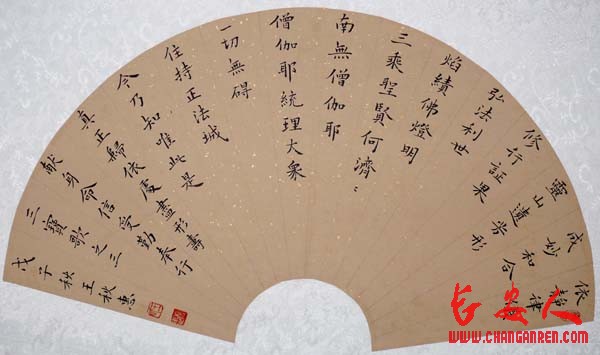 依靜律
成妙和合
靈山遺芳形
修行証果
弘法利世
焰續佛燈明
三乘聖賢何濟〻
南無僧伽耶
僧伽耶統理大衆
一切無碍
住持正法城
今乃知惟此是
真正歸依處盡形壽
獻身命信受勤奉行
三寶歌之三
戊子秋王秋惠
长安人
WWW.CHANGANREN.COM